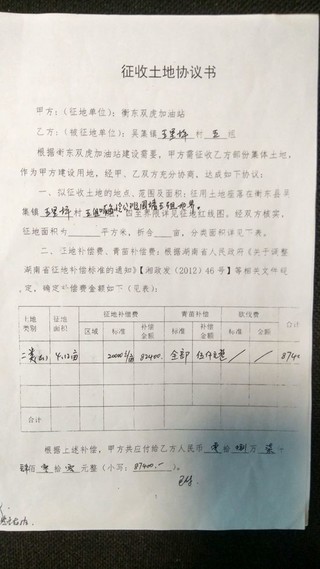 征收土地协议书
甲方：（征地单位）：衡东双虎加油站
乙方：（被征地单位）：吴集镇 村 五 组
根据衡东双虎加油站建设需要，甲方需征收乙方部份集体土地，
作为甲方建设用地，经甲、乙双方充分协商，达成如下协议：
一、拟征收土地的地点、范围及面积：征用土地座落在衡东县吴
集镇 村 四至界限详见征地红线图。经双方核实，
征地面积为 平方米，折合 亩，分类面积详见下表。
二、征地补偿费、青苗补偿费：根据湖南省人民政府《关于调整
湖南省征地补偿标准的通知》【湘政发（2012）46号】等相关文件规
定，确定补偿费金额如下（见表）：
土地类别 征地面积 征地补偿费 青苗补偿 软役费 合计
区域 标准 补偿金额 标准 补偿金额 标准 金额
4.12亩 20000元/亩 82400 全部 伍仟元整 / / 8740
合计
根据上述补偿，甲方共应付给乙方人民币 零 拾 捌 万 柒
肆佰 零 拾 零 元整（小写：87400.-）。